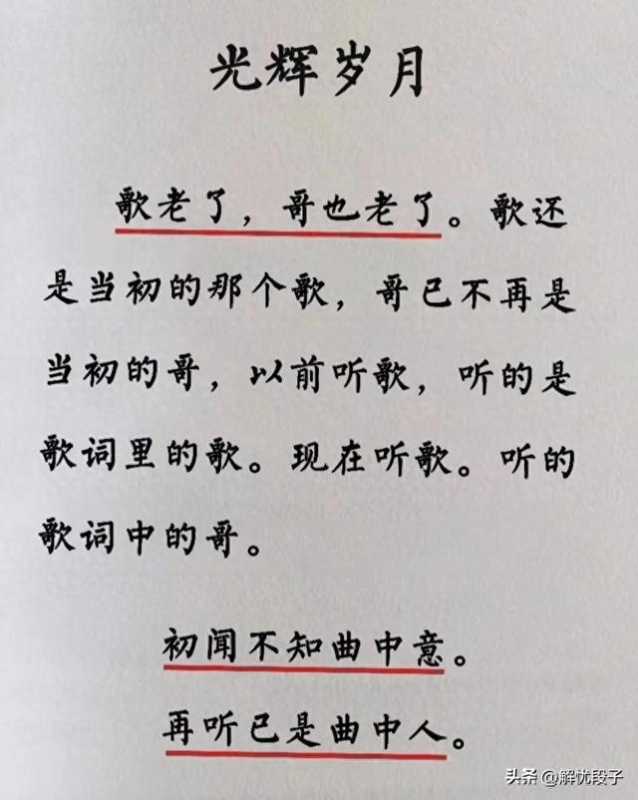 光辉岁月
歌老了，哥也老了。歌还
是当初的那个歌，哥已不再是
当初的哥，以前听歌，听的是
歌词里的歌。现在听歌。听的
歌词中的哥。
初闻不知曲中意。
再听已是曲中人。
头条 @解忧段子